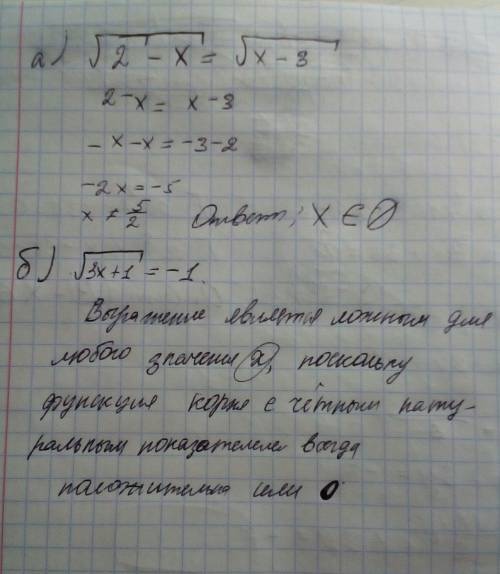 а) √2 - x = √x - 3
2 - x = x - 3
- x - x = -3 - 2
-2x = -5
x ≠ 5/2 Ответ: X ∈ ∅
б) √3x+1 = -1.
Выражение является ложным для
любого значения x, поскольку
функция корня с чётным нату-
ральным показателем всегда
положительна или 0